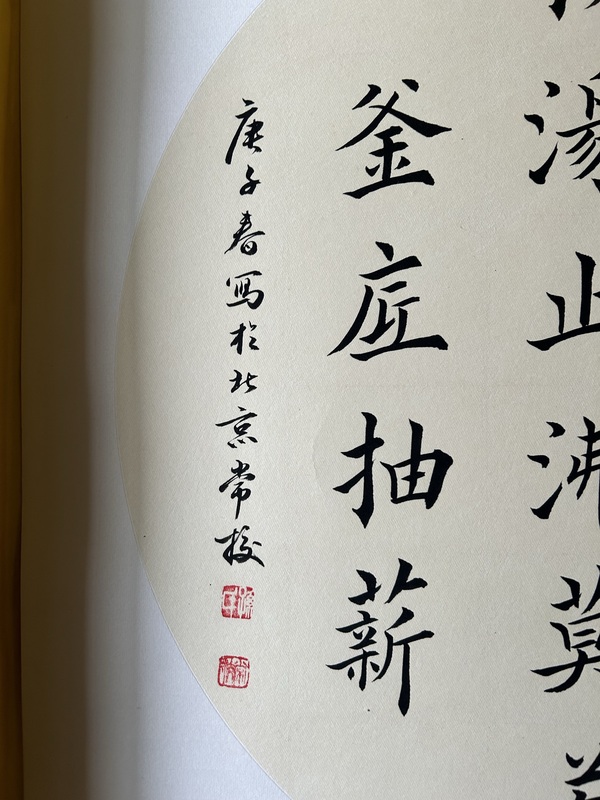 湯止沸莫
釜底抽薪
庚子春寫於北京常棪